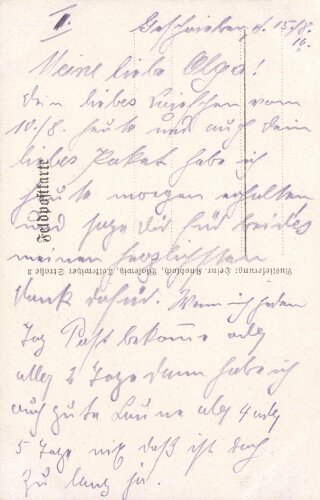 I.
Geschrieben d. 15/8. 16.
Meine liebe Olga!
Dein liebes Briefchen vom
10./8. heute und auch dein
liebes Paket habe ich
heute morgen erhalten
und sage dir für beides
meinen herzlichsten
dank dafür. Wenn ich jeden
Tag Post bekomme oder
alle 2 Tage dann habe ich
auch gute Laune aber 4 oder
5 Tage nix daß ist doch
zu lang ja.
Feldpostkarte
Auslieferung: Heinr. Straße 3